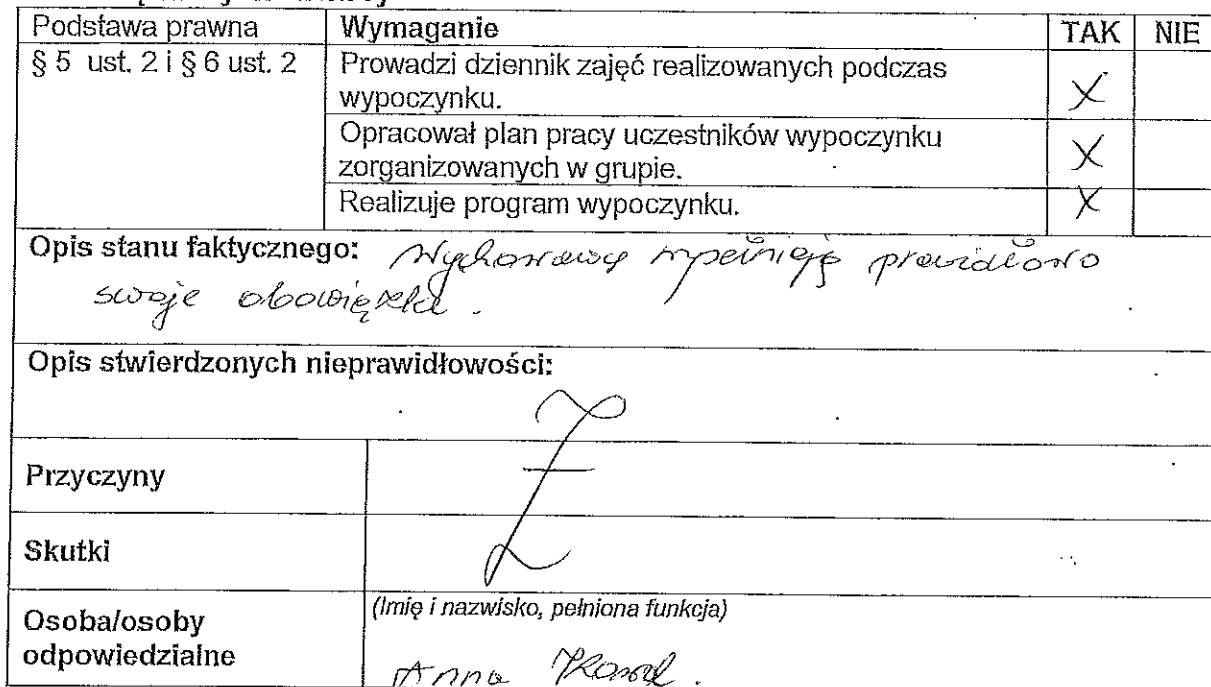 Podstawa prawna Wymaganie TAK NIE
§ 5 ust. 2 i § 6 ust. 2 Prowadzi dziennik zajęć realizowanych podczas
wypoczynku. X
Opracował plan pracy uczestników wypoczynku
zorganizowanych w grupie. X
Realizuje program wypoczynku. X
Opis stanu faktycznego: Wychowawcy wypełniają prawidłowo
swoje obowiązki.
Opis stwierdzonych nieprawidłowości:
Przyczyny
Skutki
(Imię i nazwisko, pełniona funkcja)
Osoba/osoby
odpowiedzialne Anna